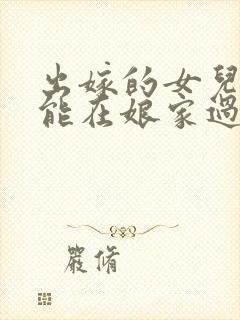 出嫁的女兒
能在娘家過
嚴脩